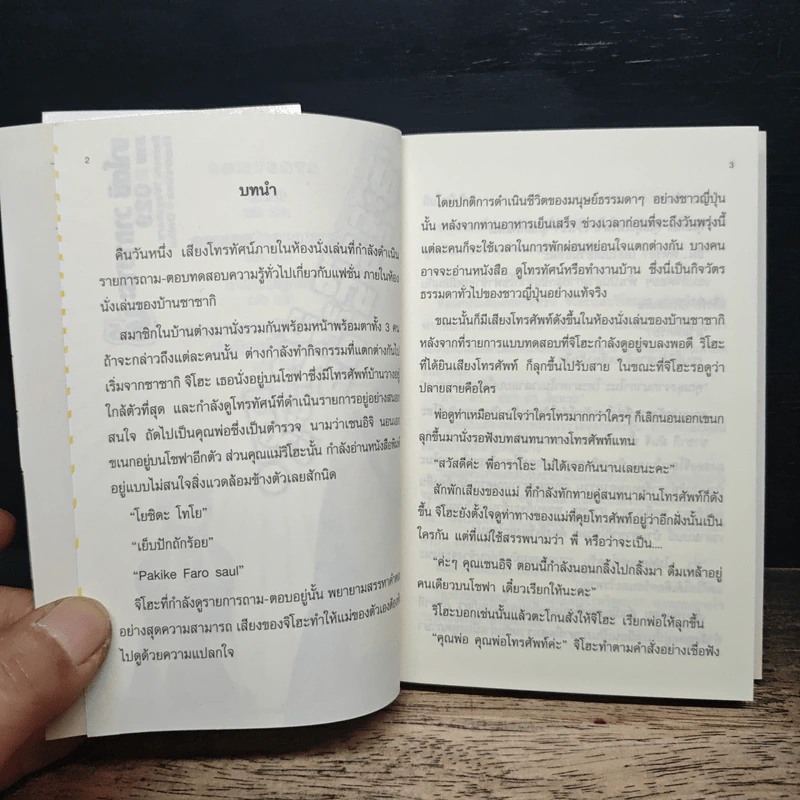 2
บทนำ
คืนวันหนึ่ง เสียงโทรทัศน์ภายในห้องนั่งเล่นที่กำลังดำเนิน
รายการถาม-ตอบทดสอบความรู้ทั่วไปเกี่ยวกับแฟชั่น ภายในห้อง
นั่งเล่นของบ้านซาซากิ
สมาชิกในบ้านต่างมานั่งรวมกันพร้อมหน้าพร้อมตาทั้ง 3 คน
ถ้าจะกล่าวถึงแต่ละคนนั้น ต่างกำลังทำกิจกรรมที่แตกต่างกันไป
เริ่มจากซาซากิ จิโฮะ เธอนั่งอยู่บนโซฟาซึ่งมีโทรศัพท์บ้านวางอยู่
ใกล้ตัวที่สุด และกำลังดูโทรทัศน์ที่ดำเนินรายการอยู่อย่างสนอก
สนใจ ถัดไปเป็นคุณพ่อซึ่งเป็นตำรวจ นามว่าเซนอิจิ นอนเอก
ขเนกอยู่บนโซฟาอีกตัว ส่วนคุณแม่ริโฮะนั้น กำลังอ่านหนังสือพิมพ์
อยู่แบบไม่สนใจสิ่งแวดล้อมข้างตัวเลยสักนิด
“โยชิดะ โทโย”
“เย็บปักถักร้อย”
“Pakike Faro saul”
จิโฮะที่กำลังดูรายการถาม-ตอบอยู่นั้น พยายามสรรหาคำตอบ
อย่างสุดความสามารถ เสียงของจิโฮะทำให้แม่ของตัวเองต้องหัน
ไปดูด้วยความแปลกใจ
3
โดยปกติการดำเนินชีวิตของมนุษย์ธรรมดาๆ อย่างชาวญี่ปุ่น
นั้น หลังจากทานอาหารเย็นเสร็จ ช่วงเวลาก่อนที่จะถึงวันพรุ่งนี้
แต่ละคนก็จะใช้เวลาในการพักผ่อนหย่อนใจแตกต่างกัน บางคน
อาจจะอ่านหนังสือ ดูโทรทัศน์หรือทำงานบ้าน ซึ่งนี่เป็นกิจวัตร
ธรรมดาทั่วไปของชาวญี่ปุ่นอย่างแท้จริง
ขณะนั้นก็มีเสียงโทรศัพท์ดังขึ้นในห้องนั่งเล่นของบ้านซาซากิ
หลังจากที่รายการแบบทดสอบที่จิโฮะกำลังดูอยู่จบลงพอดี ริโฮะ
ที่ได้ยินเสียงโทรศัพท์ ก็ลุกขึ้นไปรับสาย ในขณะที่จิโฮะรอดูว่า
ปลายสายคือใคร
พ่อดูท่าเหมือนสนใจว่าใครโทรมามากกว่าใครๆ ก็เลิกนอนเอกเขนก
ลุกขึ้นมานั่งรอฟังบทสนทนาทางโทรศัพท์แทน
“สวัสดีค่ะ พี่อาราโอะ ไม่ได้เจอกันนานเลยนะคะ”
สักพักเสียงของแม่ ที่กำลังทักทายคู่สนทนาผ่านโทรศัพท์ก็ดัง
ขึ้น จิโฮะยังตั้งใจดูท่าทางของแม่ที่คุยโทรศัพท์อยู่ว่าอีกฝั่งนั้นเป็น
ใครกัน แต่ที่แม่ใช้สรรพนามว่า พี่ หรือว่าจะเป็น....
“ค่ะๆ คุณเซนอิจิ ตอนนี้กำลังนอนกลิ้งไปกลิ้งมา ดื่มเหล้าอยู่
คนเดียวบนโซฟา เดี๋ยวเรียกให้นะคะ”
ริโฮะบอกเช่นนั้นแล้วตะโกนสั่งให้จิโฮะ เรียกพ่อให้ลุกขึ้น
“คุณพ่อ คุณพ่อโทรศัพท์ค่ะ” จิโฮะทำตามคำสั่งอย่างเชื่อฟัง